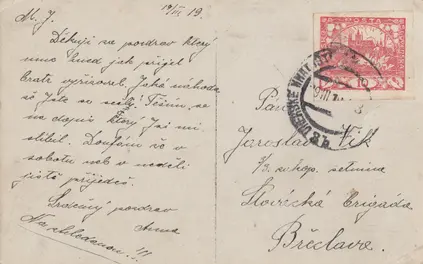 19/III 19.
M. J.
Děkuji za pozdrav který
mně hned jak přijel
bratr vyřizoval. Jaká náhoda
že jste se sešli. Těším se
na dopis který Jsi mi
slíbil. Doufám že v
sobotu neb v neděli
jistě přijedeš.
Srdečný pozdrav
Anna
Nashledanou!!!
Pan
Jaroslav Vlk
setnina
Slovácká Brigáda
Břeclava.